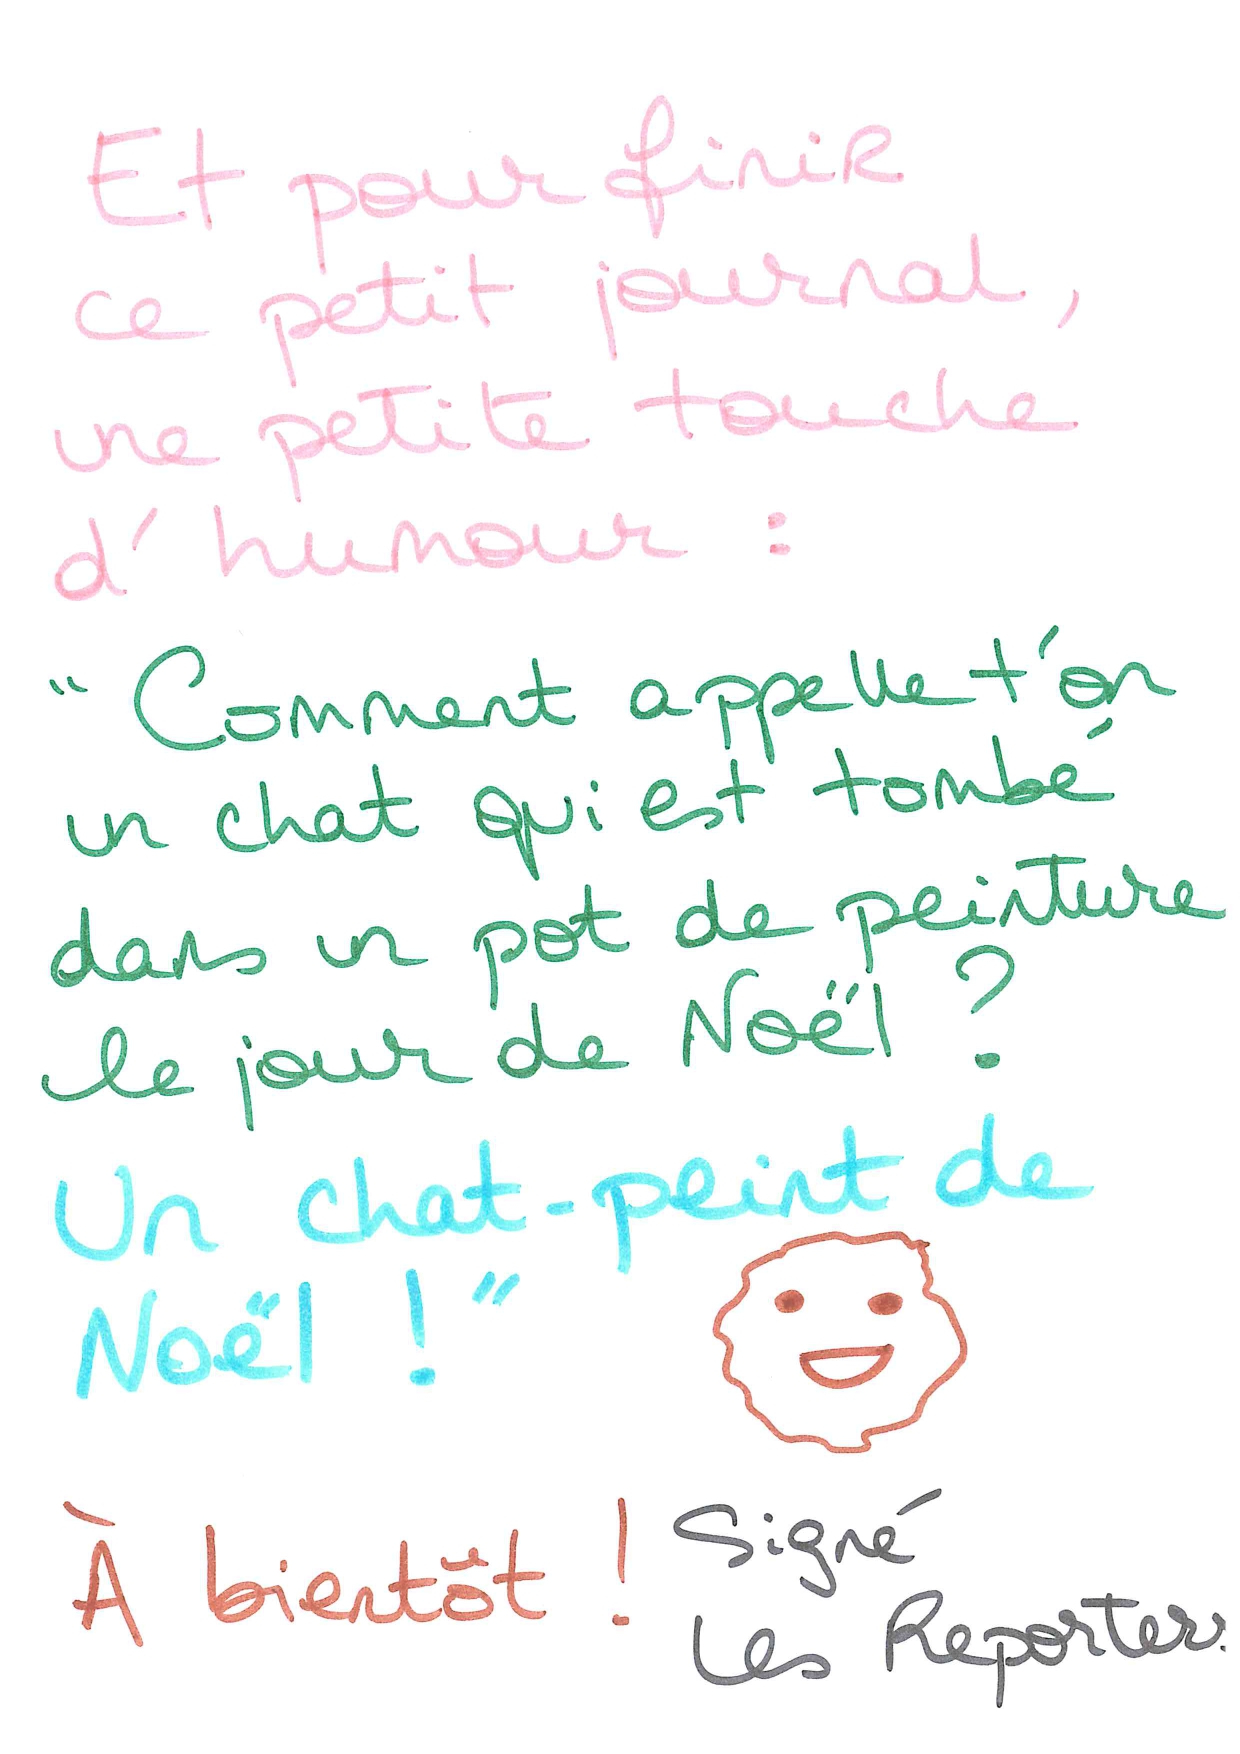 Et pour finir
ce petit journal,
une petite touche
d'humour :
"Comment appelle t'on
un chat qui est tombé
dans un pot de peinture
le jour de Noël ?
Un chat-peint de
Noël ! "
À bientôt !
Signé
Les Reporter.